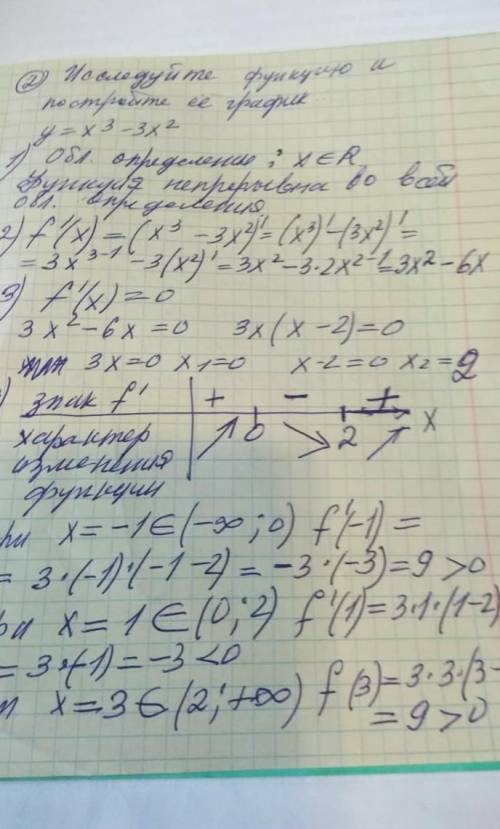 ② Исследуйте функцию и
постройте её график
y = x³ - 3x²
1) Обл. определение: x ∈ R
Функция непрерывна во всей
обл. определения
2) f'(x) = (x³ - 3x²)' = (x³)' - (3x²)' =
= 3x³⁻¹ - 3(x²)' = 3x² - 3·2x²⁻¹ = 3x² - 6x
3) f'(x) = 0
3x² - 6x = 0 3x(x - 2) = 0
3x = 0 x₁ = 0 x - 2 = 0 x₂ = 2
) знак f' + - +
0 2 x
характер ↗ ↘ ↗
изменения
функции
ри x = -1 ∈ (-∞; 0) f'(-1) =
= 3·(-1)·(-1-2) = -3·(-3) = 9 > 0
ри x = 1 ∈ (0; 2) f'(1) = 3·1·(1-2)
= 3·(-1) = -3 < 0
и x = 3 ∈ (2; +∞) f(3) = 3·3·(3-
= 9 > 0